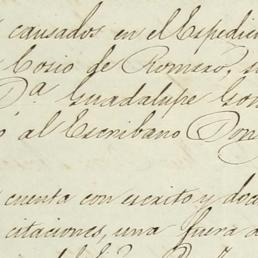 causados en el Expedien
Cosio de Romero, s
D.ª Guadalupe Gon
al Escribano Don
cuenta con escrito y doc
citaciones, una fuera d